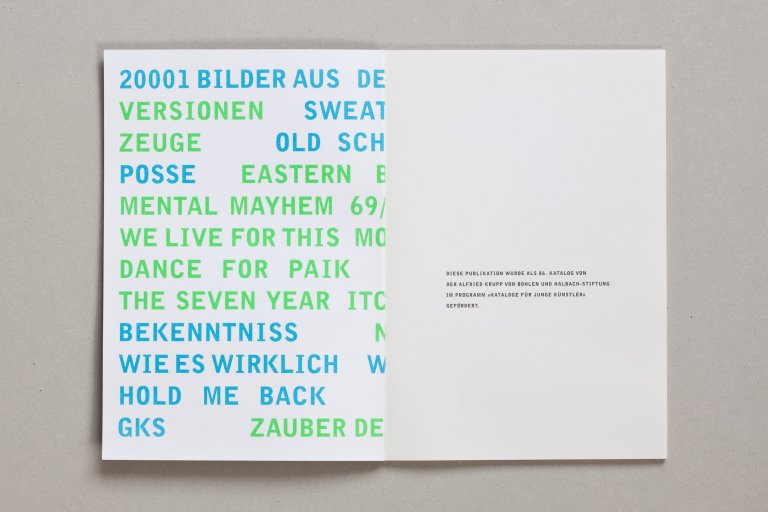 20001 BILDER AUS DE
VERSIONEN SWEAT
ZEUGE OLD SCH
POSSE EASTERN B
MENTAL MAYHEM 69/
WE LIVE FOR THIS MO
DANCE FOR PAIK
THE SEVEN YEAR ITC
BEKENNTNISS N
WIE ES WIRKLICH W
HOLD ME BACK
GKS ZAUBER DE
DIESE PUBLIKATION WURDE ALS 86. KATALOG VON
DER ALFRIED KRUPP VON BOHLEN UND HALBACH-STIFTUNG
IM PROGRAMM »KATALOGE FÜR JUNGE KÜNSTLER«
GEFÖRDERT.